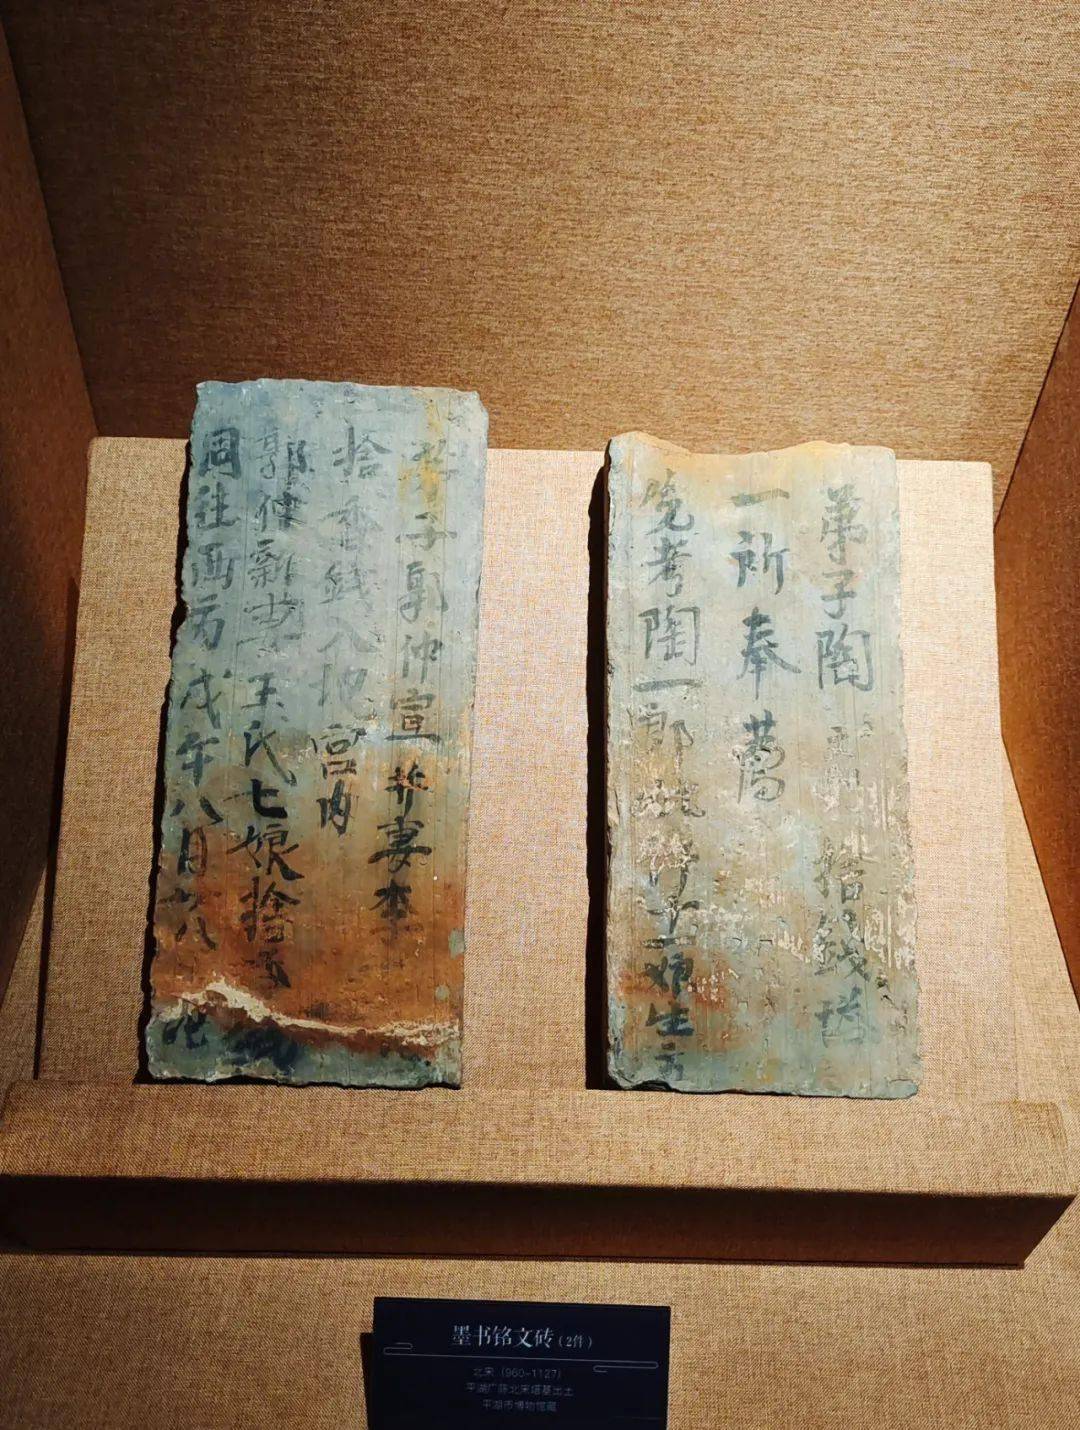 弟子郭仲宣并妻李
拾香錢入地宫内
郭仲新妻王氏七娘捨 錢
同往西方戊午八月十八日記
弟子陶 捨錢塔
一所奉薦
先考陶一郎 娘生方
墨书铭文砖（2件）
北宋（960-1127）
平湖广陈北宋塔基出土
平湖市博物馆藏